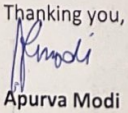 Thanking you,
Modi
Apurva Modi